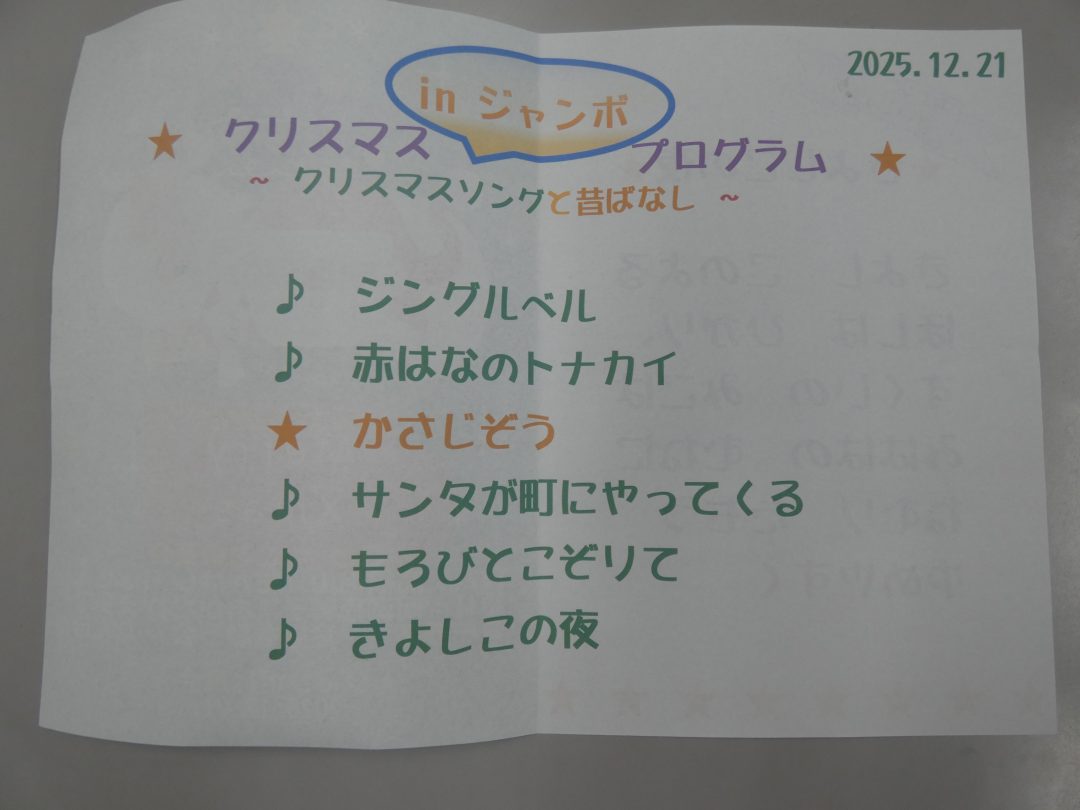 2025.12.21
in ジャンボ
★ クリスマス プログラム ★
~ クリスマスソングと昔ばなし ~
♪ ジングルベル
♪ 赤はなのトナカイ
★ かさじぞう
♪ サンタが町にやってくる
♪ もろびとこぞりて
♪ きよしこの夜